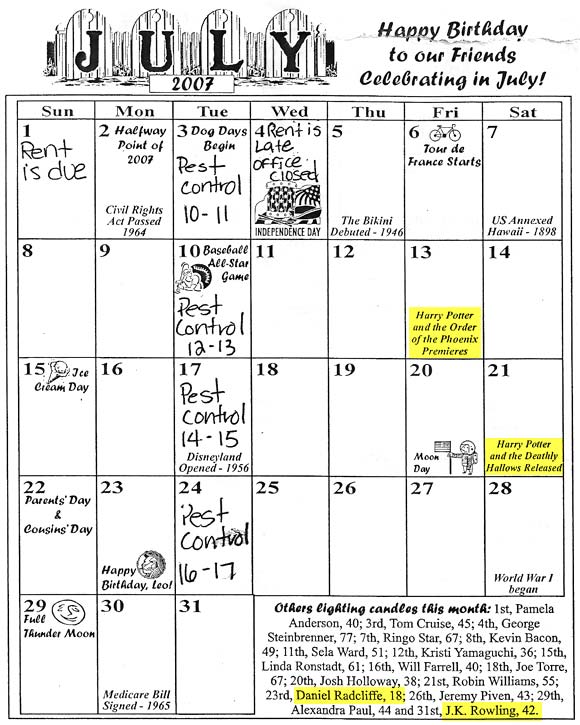 JULY
2007
Happy Birthday
to our Friends
Celebrating in July!
Sun Mon Tue Wed Thu Fri Sat
1
Rent
is due
2 Halfway
Point of
2007
Civil Rights
Act Passed
1964
3 Dog Days
Begin
Pest
control
10-11
4 Rent is
Late
office
closed
INDEPENDENCE DAY
5
The Bikini
Debuted - 1946
6
Tour de
France Starts
7
US Annexed
Hawaii - 1898
8
9
10 Baseball
All-Star
Game
Pest
Control
12-13
11
12
13
Harry Potter
and the Order
of the Phoenix
Premieres
14
15 Ice
Cream Day
16
17
Pest
control
14-15
Disneyland
Opened - 1956
18
19
20
Moon
Day
21
Harry Potter
and the Deathly
Hallows Released
22
Parents' Day
&
Cousins' Day
23
Happy
Birthday, Leo!
24
Pest
Control
16-17
25
26
27
28
World War I
began
29
Full
Thunder Moon
30
Medicare Bill
Signed - 1965
31
Others lighting candles this month: 1st, Pamela
Anderson, 40; 3rd, Tom Cruise, 45; 4th, George
Steinbrenner, 77; 7th, Ringo Star, 67; 8th, Kevin Bacon,
49; 11th, Sela Ward, 51; 12th, Kristi Yamaguchi, 36; 15th,
Linda Ronstadt, 61; 16th, Will Farrell, 40; 18th, Joe Torre,
67; 20th, Josh Holloway, 38; 21st, Robin Williams, 55;
23rd, Daniel Radcliffe, 18; 26th, Jeremy Piven, 43; 29th,
Alexandra Paul, 44 and 31st, J.K. Rowling, 42.